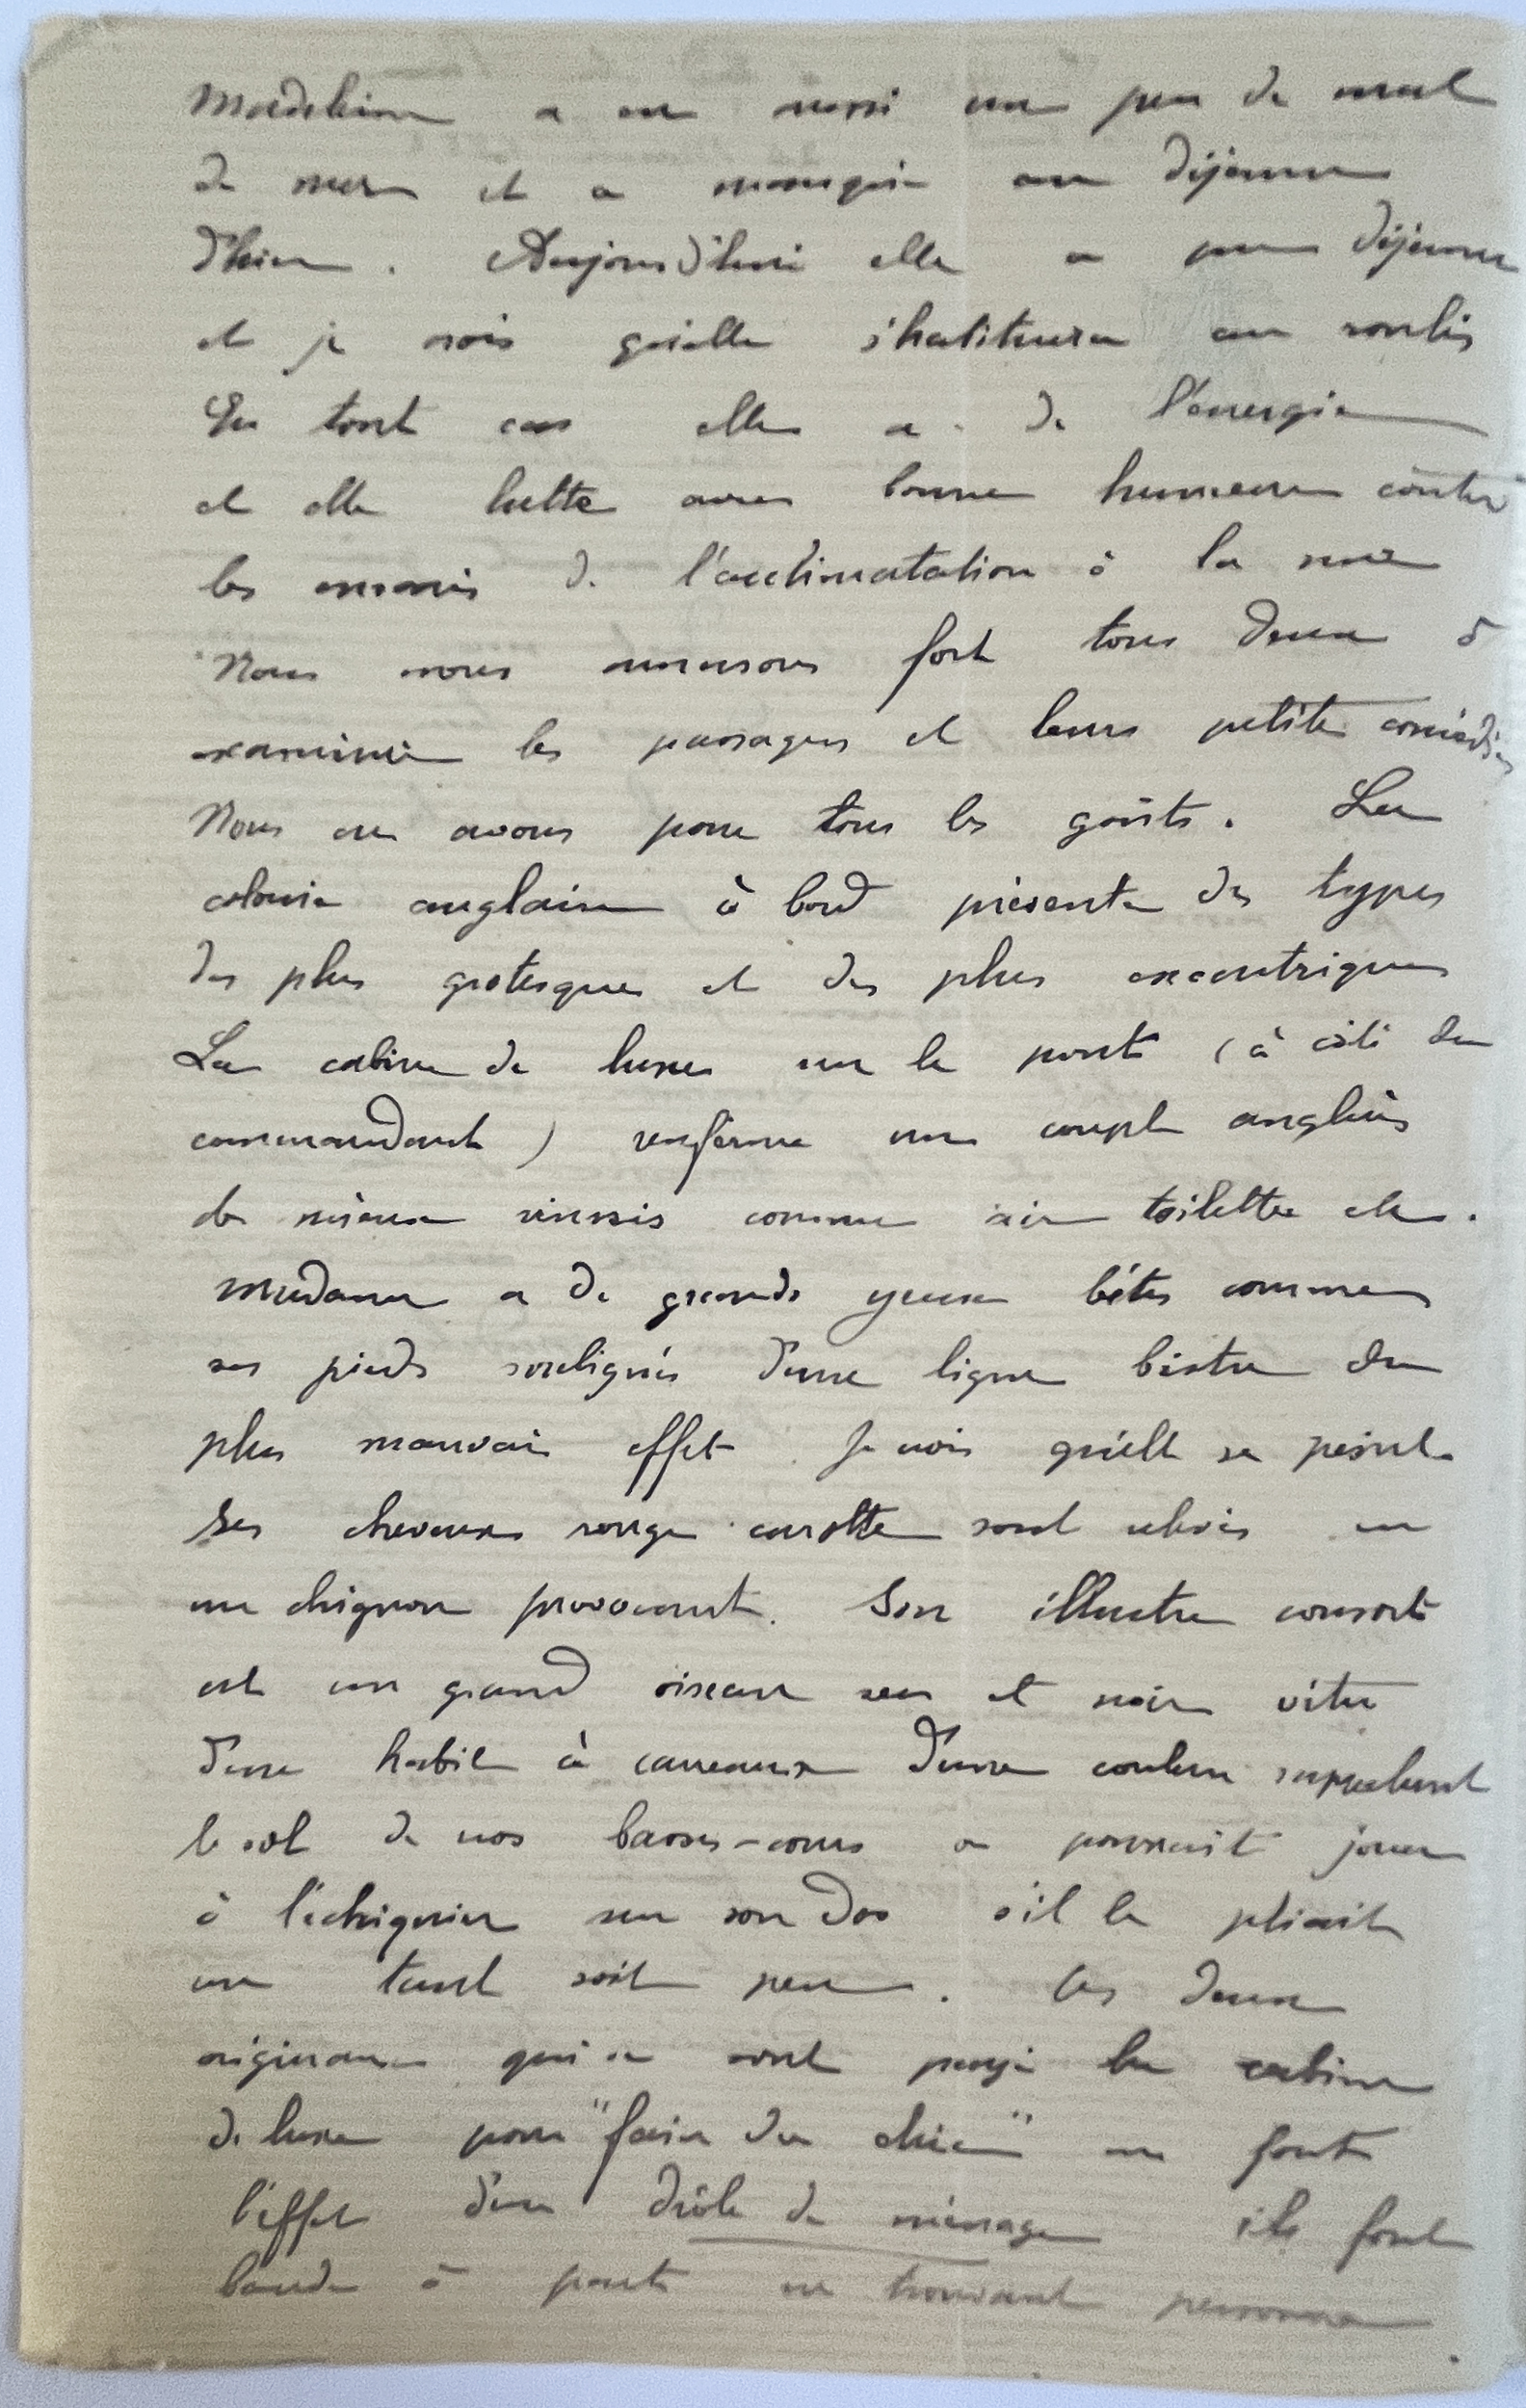 Madeleine a eu aussi un peu de mal
de mer et a manqué au déjeuner
d'hier. Aujourd'hui elle a pu déjeuner
et je crois qu'elle s'habituera au roulis
En tout cas elle a de l'énergie
et elle lutte avec bonne humeur contre
les ennuis de l'acclimatation à la mer
Nous nous amusons fort tous deux à
examiner les passagers et leurs petites comédies
Nous en avons pour tous les goûts. La
colonie anglaise à bord présente des types
des plus grotesques et des plus excentriques
La cabine de luxe sur le pont (à côté du
commandant) renferme un couple anglais
des mieux réussis comme air toilette etc.
Madame a de grands yeux bêtes comme
ses pieds soulignés d'une ligne bistre du
plus mauvais effet Je crois qu'elle se peint
Ses cheveux rouge carotte sont relevés en
un chignon provocant. Son illustre consort
est un grand oiseau sec et noir vêtu
d'un habit à carreaux d'une couleur rappelant
le sol de nos basses-cours on pourrait jouer
à l'échiquier sur son dos s'il le pliait
un tant soit peu. Ces deux
originaux qui se sont payé la cabine
de luxe pour "faire du chic" me font
l'effet d'un drôle de ménage ils font
bande à part ne trouvant personne